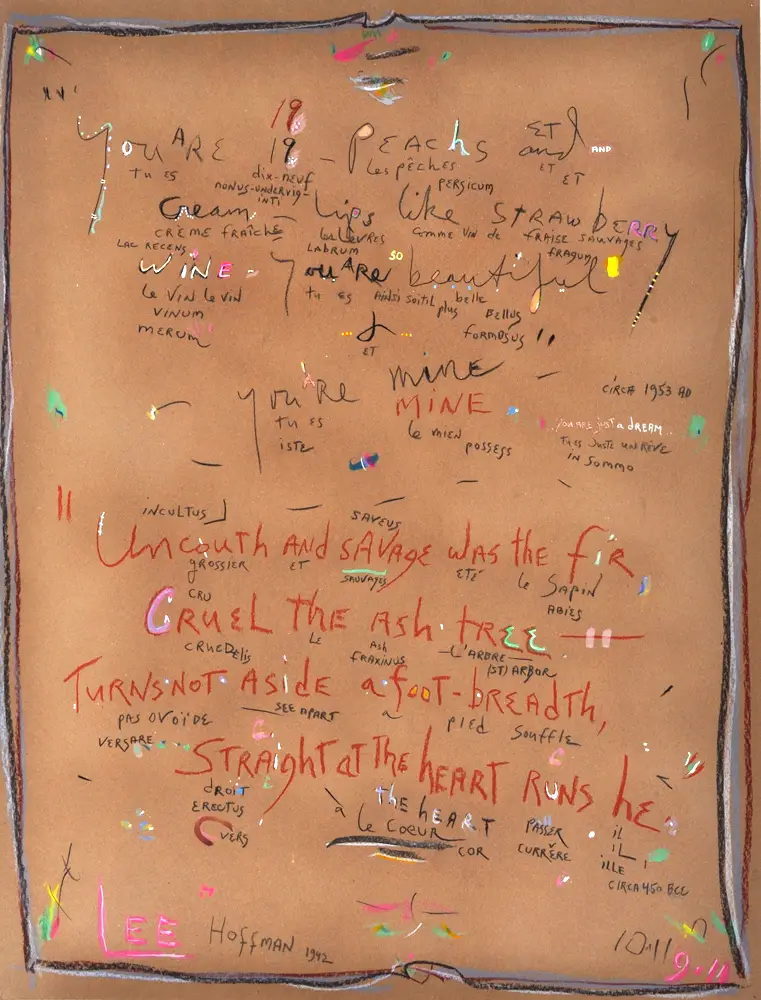 19
YOU ARE 19 – PEACHS ET and AND
tu es dix-neuf les pêches ET
NONUS-UNDERVIG-INTI PERSICUM ET
Cream – Lips like STRAWBERRY
CRÈME FRAÎCHE les LEVRES COMME VIN de FRAISE SAUVAGES
LAC RECENS LABRUM FRAGUM
WINE – YOU ARE SO beautiful
le VIN le VIN tu es AINSI SOITIL plus belle BELLUS
VINUM FORMOSUS
MERUM
ET
YOU'RE mine
CIRCA 1953 AD
MINE
tu es le mien YOU ARE JUST A DREAM..
ISTE possess TU ES JUSTE UN RÊVE
IN SOMMO
INCULTUS SAVEUS
UNCOUTH AND SAVAGE WAS THE FIR
GROSSIER ET SAUVAGES ETÉ le SAPIN
CRU ABIES
CRUEL THE ASH TREE
CRUEDELIS LE ASH L'ARBRE
FRAXINUS (ST) ARBOR
TURNS NOT ASIDE a foot-BREADTH,
PAS OVOÏDE SEE APART a PIED SOUFFLE
VERSARE
STRAIGHT AT THE HEART RUNS he.
DROIT à THE HEART PASSER IL
ERECTUS le COEUR CURRĔRE IL
VERS COR ILLE
CIRCA 450 BCE
LEE HOFFMAN 1942 10-11
9-11